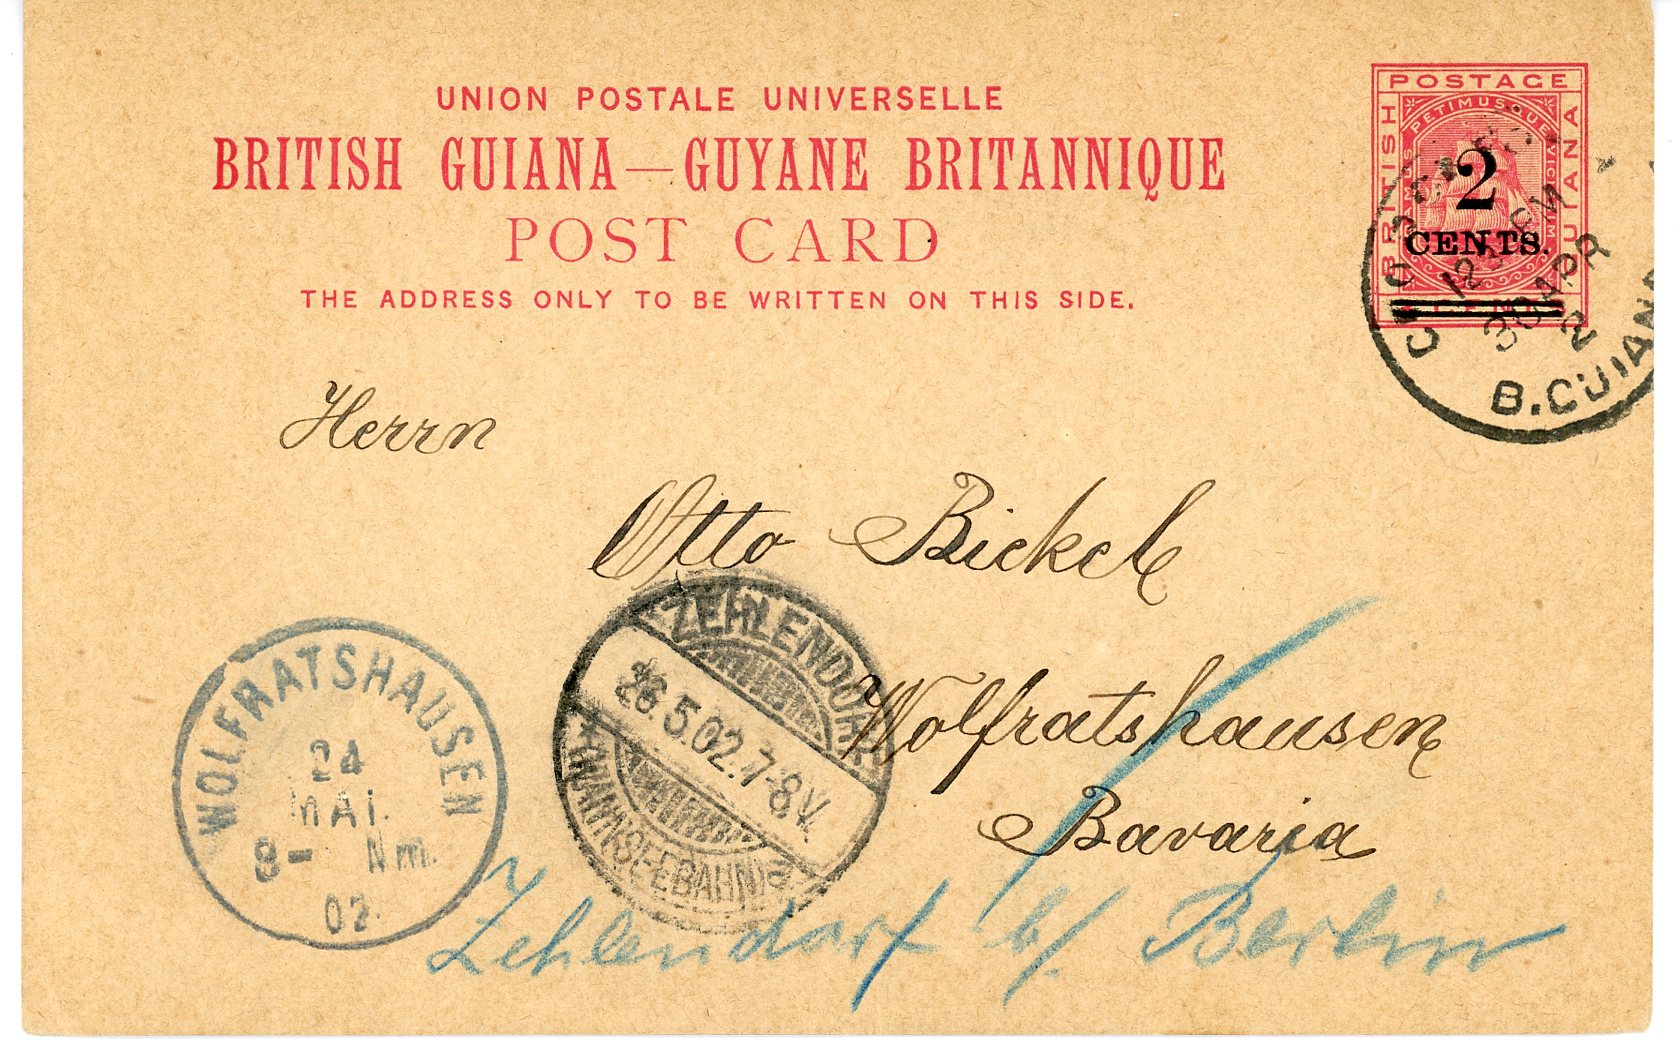 UNION POSTALE UNIVERSELLE
BRITISH GUIANA—GUYANE BRITANNIQUE
POST CARD
THE ADDRESS ONLY TO BE WRITTEN ON THIS SIDE.
POSTAGE
BRITISH
GUIANA
PETIMUSQUE VICISSIM
2
CENTS.
30 APR
2
B. GUIANA
Herrn
Otto Bickel
Wolfratshausen
Bavaria
WOLFRATSHAUSEN
24
MAI.
8- Nm.
02.
ZEHLENDORF
26.5.02.7-8V.
(WANNSEEBAHN)
Zehlendorf b/ Berlin